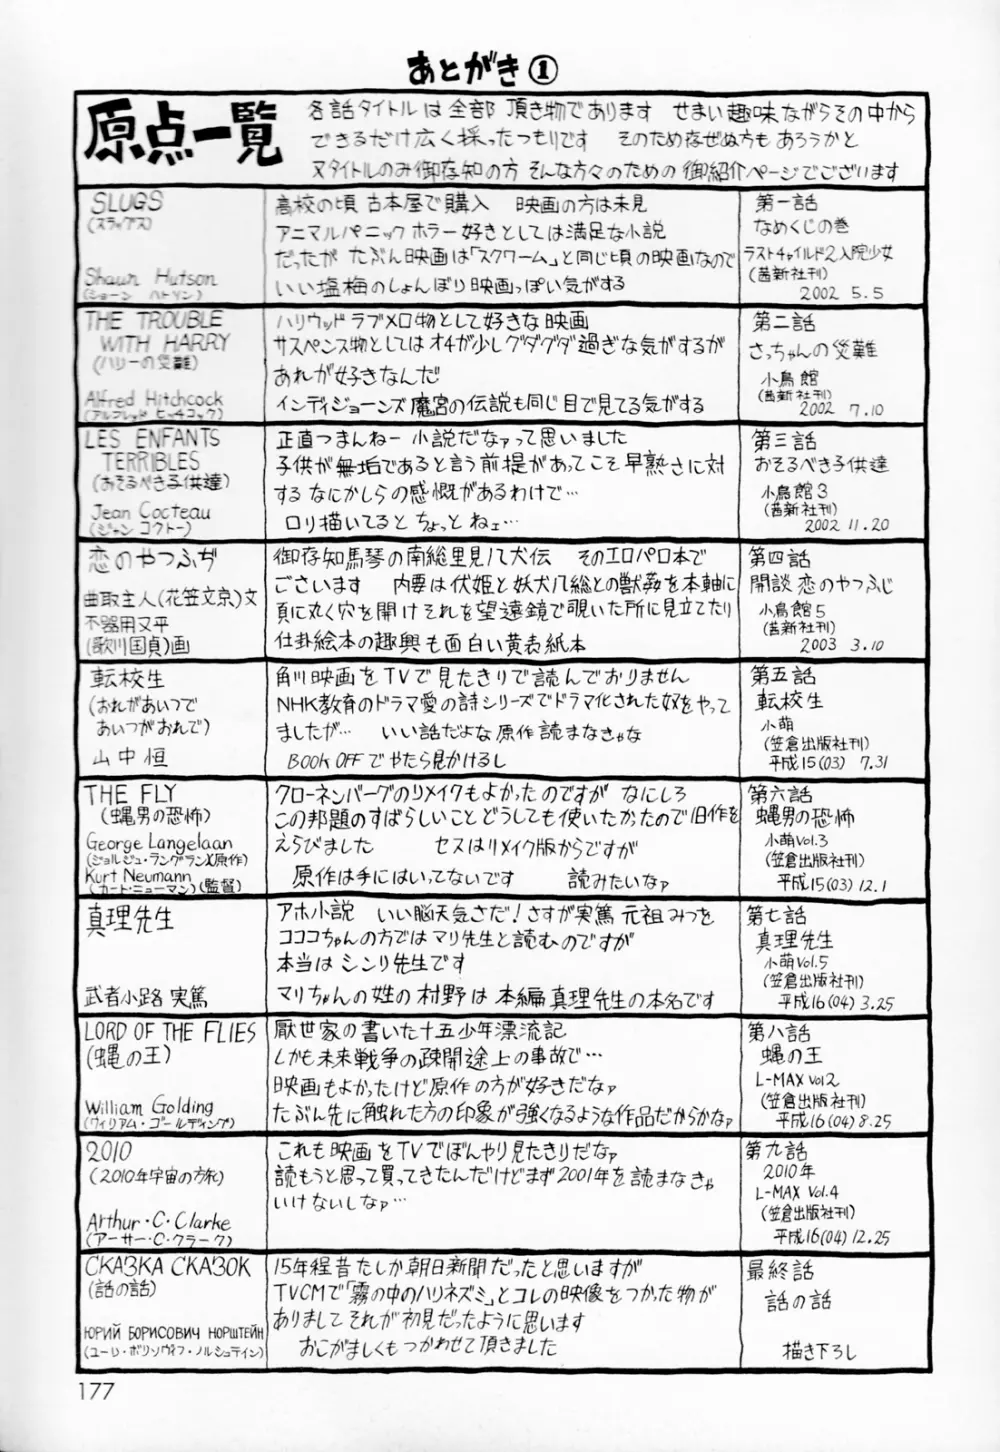 あとがき①
原点一覧
各話タイトルは全部 頂き物であります せまい趣味ながらその中から
できるだけ広く採ったつもりです そのため存ぜぬ方もあろうかと
又タイトルのみ御存知の方 そんな方々のための御紹介ページでございます
SLUGS
(スラッグス)
Shaun Hutson
(ショーン ハトソン)
高校の頃 古本屋で購入 映画の方は未見
アニマルパニックホラー好きとしては満足な小説
だったが たぶん映画は「スクワーム」と同じ頃の映画なので
いい塩梅のしょんぼり映画っぽい気がする
第一話
なめくじの巻
ラストチャイルド2入院少女
(茜新社刊)
2002 5.5
THE TROUBLE
WITH HARRY
(ハリーの災難)
Alfred Hitchcock
(アルフレッド ヒッチコック)
ハリウッドラブメロ物として好きな映画
サスペンス物としてはオチが少しグダグダ過ぎな気がするが
あれが好きなんだ
インディジョーンズ魔宮の伝説も同じ目で見てる気がする
第二話
さっちゃんの災難
小鳥館
(茜新社刊)
2002 7.10
LES ENFANTS
TERRIBLES
(おそるべき子供達)
Jean Cocteau
(ジャン コクトー)
正直つまんねー小説だなァって思いました
子供が無垢であると言う前提があってこそ早熟さに対
するなにかしらの感慨があるわけで…
ロリ描いてるとちょっとねェ…
第三話
おそるべき子供達
小鳥館3
(茜新社刊)
2002 11.20
恋のやつふぢ
曲取主人(花笠文京)文
不器用又平
(歌川国貞)画
御存知馬琴の南総里見八犬伝 そのエロパロ本で
ございます 内要は伏姫と妖犬八総との獣姦を本軸に
頁に丸く穴を開けそれを望遠鏡で覗いた所に見立てたり
仕掛絵本の趣興も面白い黄表紙本
第四話
開談 恋のやつふじ
小鳥館5
(茜新社刊)
2003 3.10
転校生
(おれがあいつで
あいつがおれで)
山中恒
角川映画をTVで見たきりで読んでおりません
NHK教育のドラマ愛の詩シリーズでドラマ化された奴をやって
ましたが… いい話だよな原作読まなきゃな
BOOK OFFでやたら見かけるし
第五話
転校生
小萌
(笠倉出版社刊)
平成15(03) 7.31
THE FLY
(蝿男の恐怖)
George Langelaan
(ジョルジュ・ランジュラン)(原作)
Kurt Neumann
(カート・ニューマン)(監督)
クローネンバーグのリメイクもよかったのですが なにしろ
この邦題のすばらしいことどうしても使いたかったので旧作を
えらびました セスはリメイク版からですが
原作は手にはいってないです 読みたいなァ
第六話
蝿男の恐怖
小萌Vol.3
(笠倉出版社刊)
平成15(03) 12.1
真理先生
武者小路 実篤
アホ小説 いい脳天気さだ!さすが実篤 元祖みつを
ココココちゃんの方ではマリ先生と読むのですが
本当はシンリ先生です
マリちゃんの姓の村野は本編真理先生の本名です
第七話
真理先生
小萌Vol.5
(笠倉出版社刊)
平成16(04) 3.25
LORD OF THE FLIES
(蝿の王)
William Golding
(ウィリアム・ゴールディング)
厭世家の書いた十五少年漂流記
しかも未来戦争の疎開途上の事故で…
映画もよかったけど原作の方が好きだなァ
たぶん先に触れた方の印象が強くなるような作品だからかなァ
第八話
蝿の王
L-MAX Vol2
(笠倉出版社刊)
平成16(04) 8.25
2010
(2010年宇宙の旅)
Arthur・C・Clarke
(アーサー・C・クラーク)
これも映画をTVでぼんやり見たきりだなァ
読もうと思って買ってきたんだけどまず2001年を読まなきゃ
いけないしなァ…
第九話
2010年
L-MAX Vol.4
(笠倉出版社刊)
平成16(04) 12.25
СКАЗКА СКАЗОК
(話の話)
ЮРИЙ БОРИСОВИЧ НОРШТЕЙН
(ユーリ・ボリソヴィチ・ノルシュテイン)
15年程昔たしか朝日新聞だったと思いますが
TVCMで「霧の中のハリネズミ」とコレの映像をつかった物が
ありましてそれが初見だったように思います
おこがましくもつかわせて頂きました
最終話
話の話
描き下ろし
177